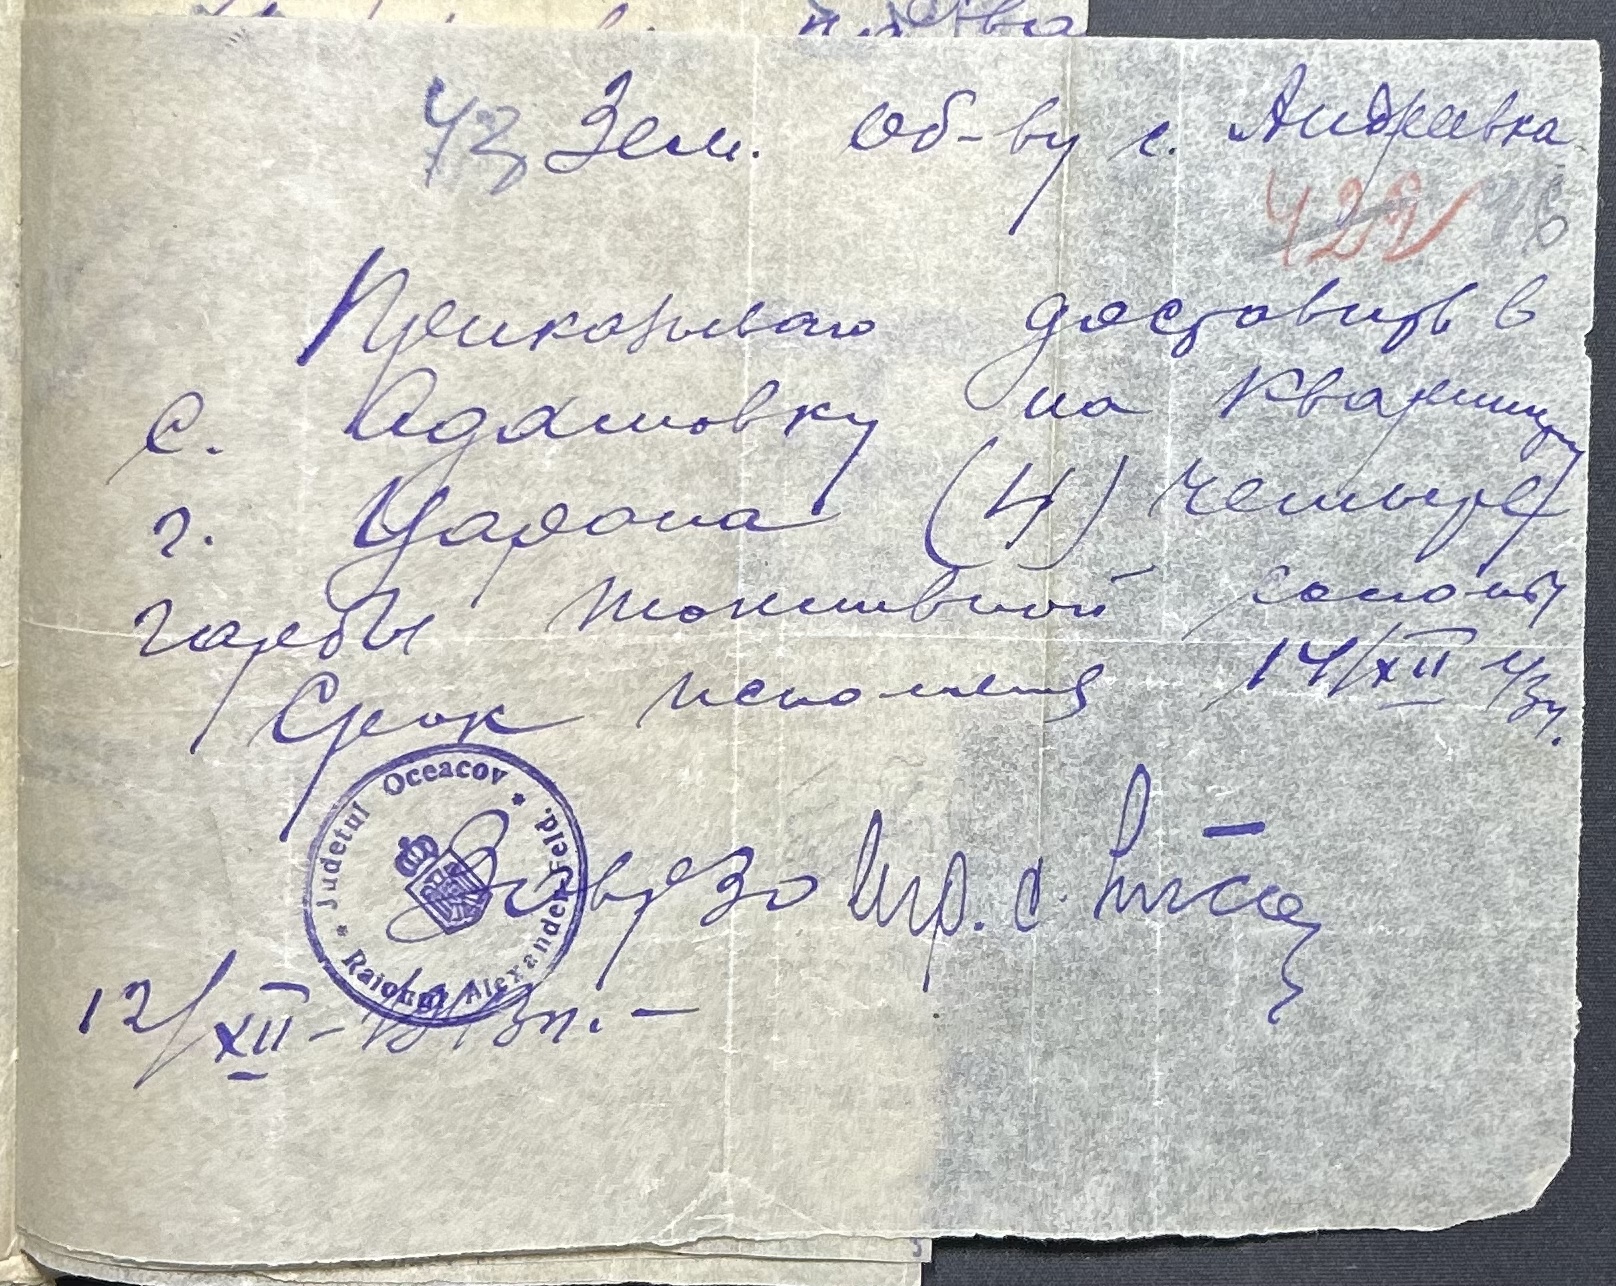 43 Зем. Об-ву с. Андревка
422
Приказываю доставить в
с. Адамовку на квартиру
г. Царана (4) четыре
гарбы топливной соломы
Срок исполнения 14/XII 43г.
Judetul Oceacov * Raionul Alexanderfeld. *
12/XII-1943г.-